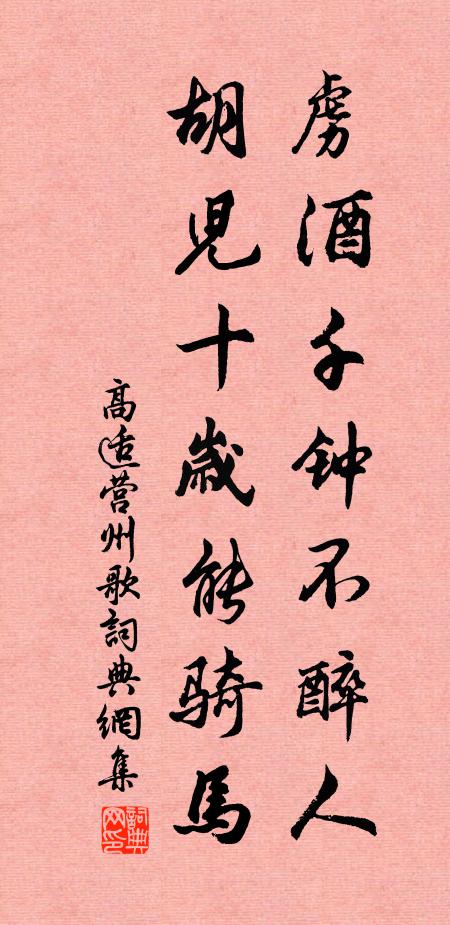 虏酒千钟不醉人
胡児十歳能骑馬
高适营州歌詞典網集
詞典网印